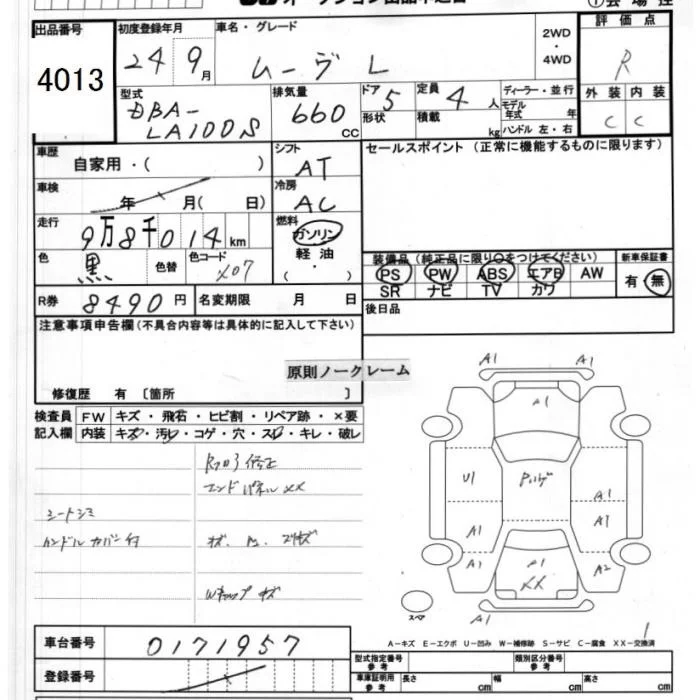 オークション出品申込書
出品番号 4013
初度登録年月 24 9月
車名・グレード ムーヴ L
2WD・4WD
評価点 R
外装 内装
C C
型式 DBA-LA100S
排気量 660 cc
ドア 5
形状
定員 4人
積載 kg
ディーラー・並行
モデル年式 年
ハンドル 左・右
車歴 自家用・( )
シフト AT
セールスポイント (正常に機能するものに限ります)
車検 年 月( 日)
冷房 AC
走行 9万8千014km
燃料 ガソリン
軽油
( ・ )
色 黒 色替 色コード X07
装備品 (純正品に限り○をつけてください)
新車保証書
PS PW ABS エアB AW
SR ナビ TV カワ
有・無
R券 8490円 名変期限 月 日
後日品
注意事項申告欄(不具合内容等は具体的に記入して下さい)
原則ノークレーム
修復歴 有 〔箇所 〕
検査員 FW キズ・飛石・ヒビ割・リペア跡・×要
記入欄 内装 キズ・汚レ・コゲ・穴・スレ・キレ・破レ
Rフロア修正
エンドパネルXX
シートシミ
ハンドルカバー付
Wキャップ キズ
A1 A1
A1
U1 Pルーフ
A1
A1 A1
A1 A1 A2
XX
A1
スペア
1
A-キズ E-エクボ U-凹み W-補修跡 S-サビ C-腐食 XX-交換済
車台番号 0171957
登録番号
型式指定番号 参考 類別区分番号 参考
車庫証明用 参考 長さ cm 幅 cm 高さ cm